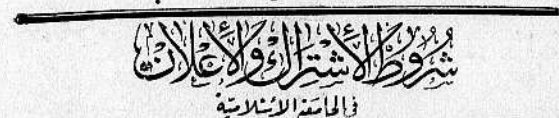 شروط الاشتراك والاعلان
في الجامعة الاسلامية